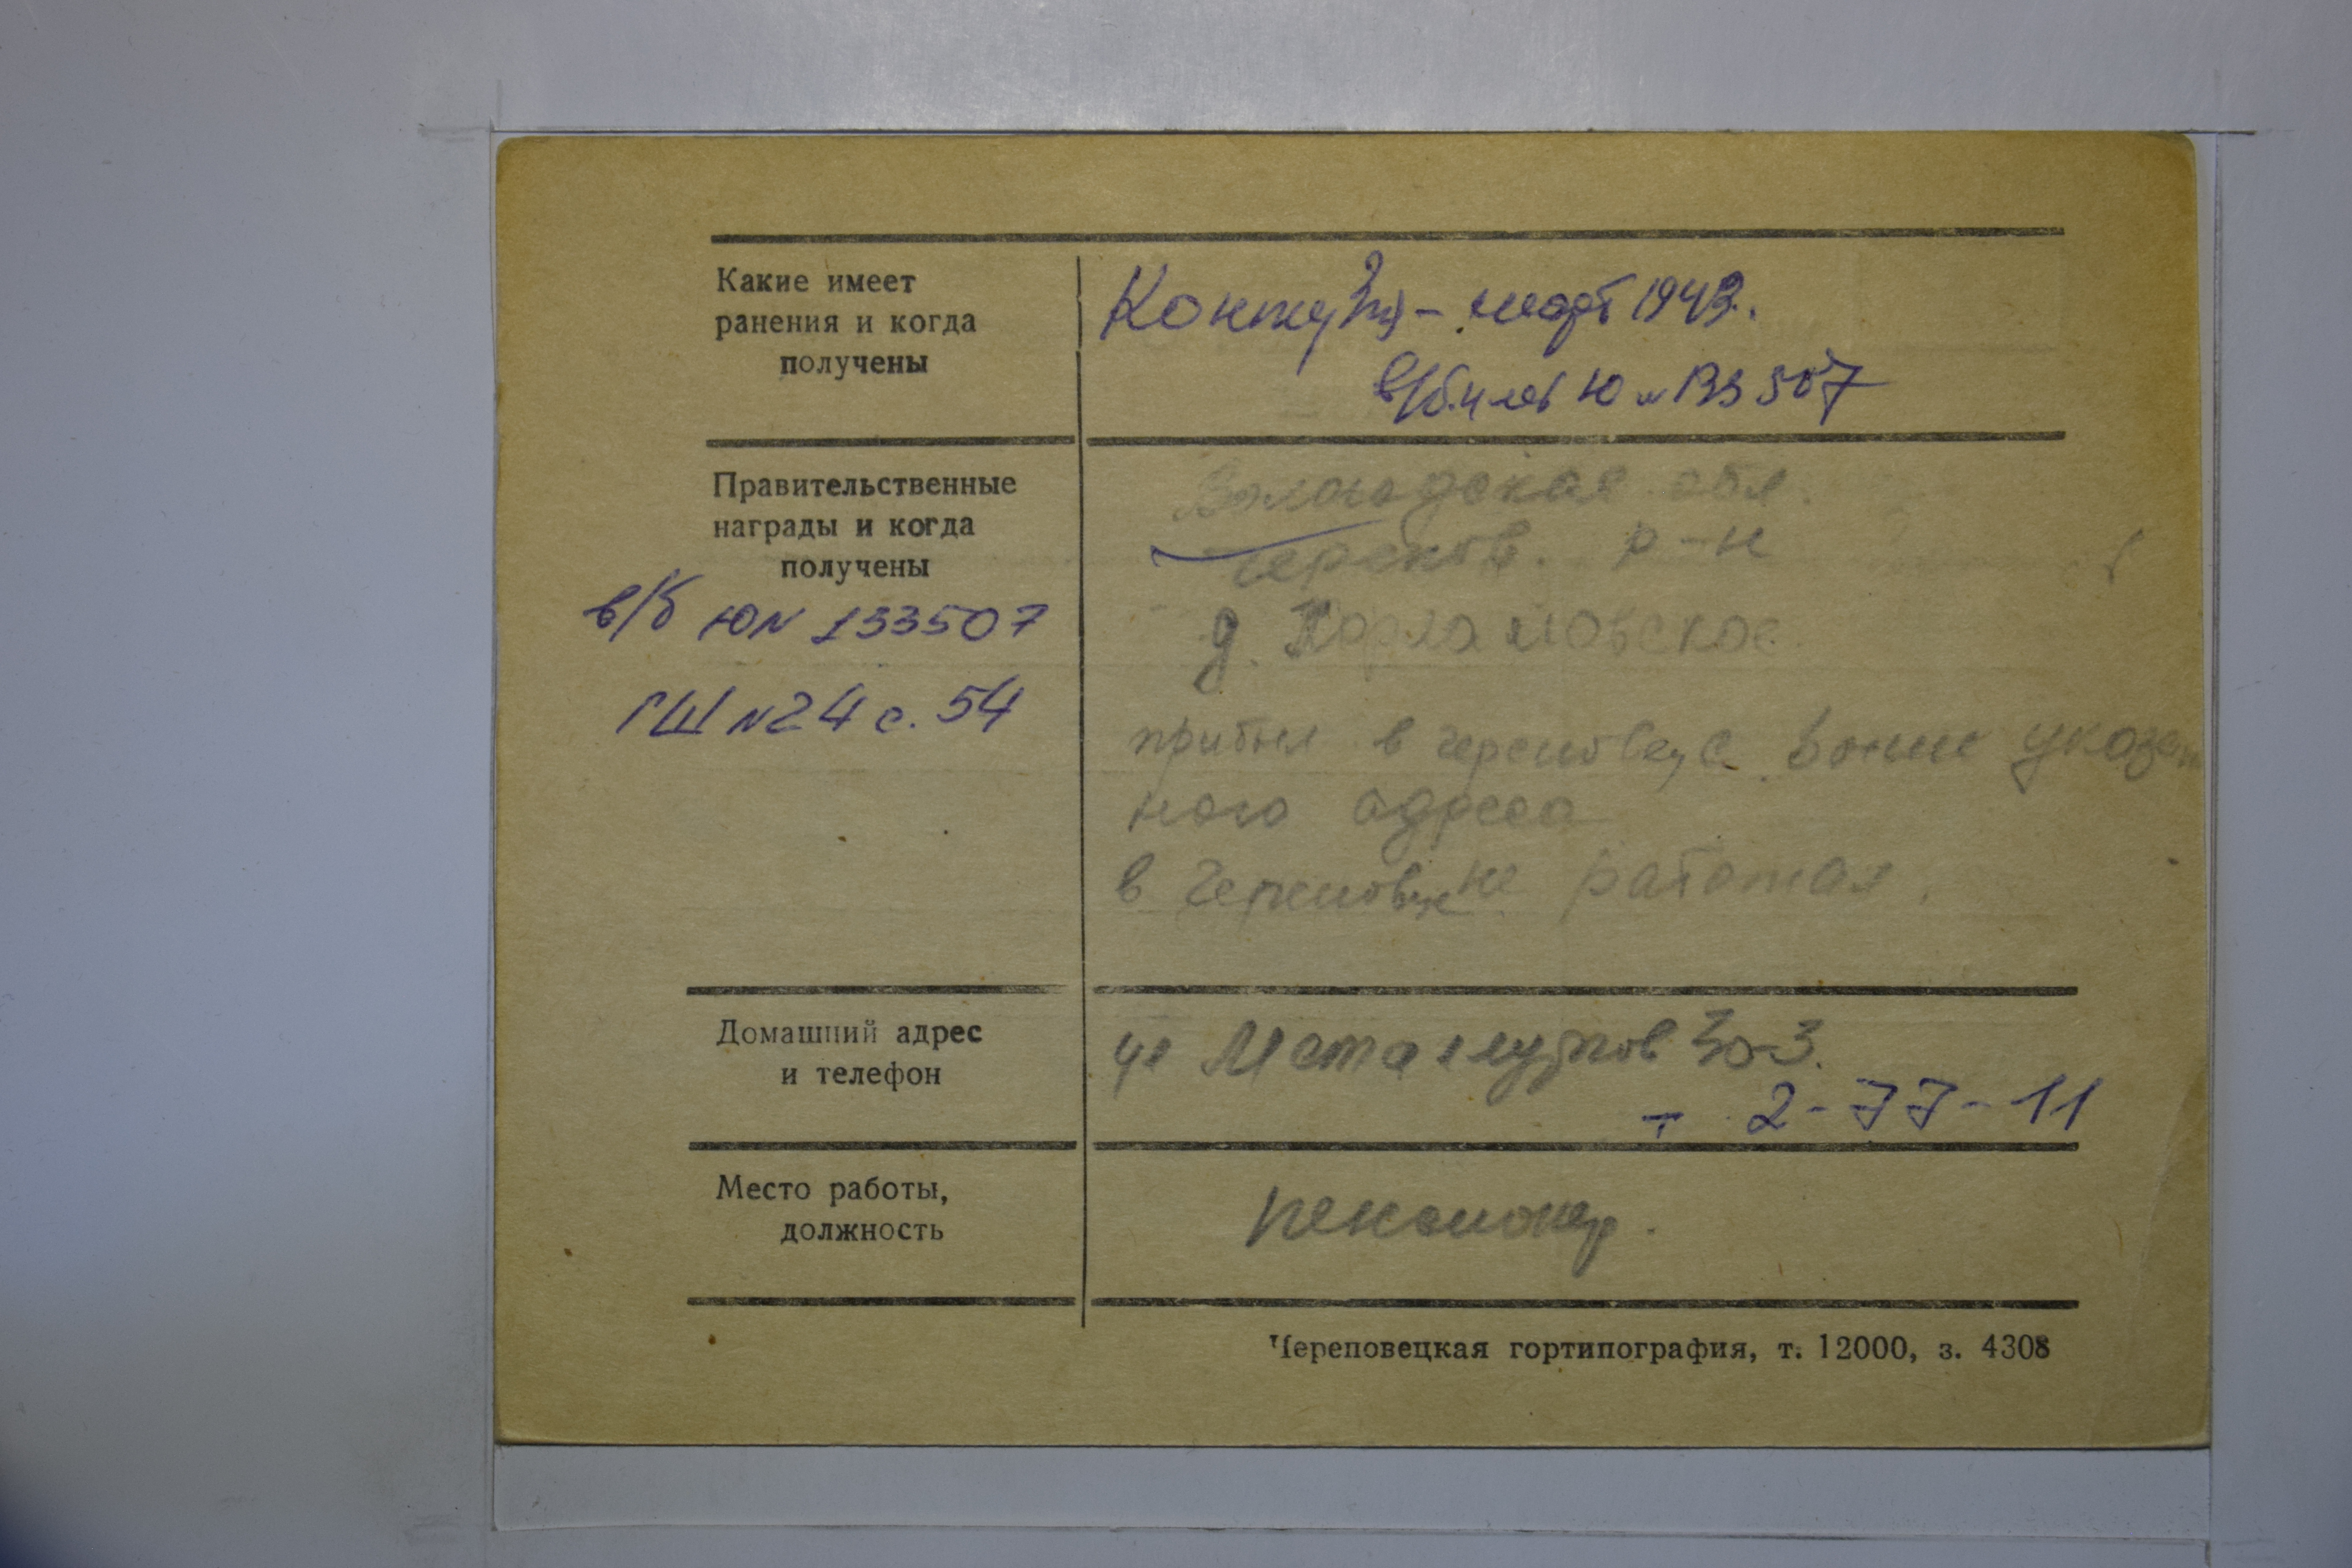 Какие имеет
ранения и когда
получены
Контузия - март 1943.
в/билет Ю № 133507
Правительственные
награды и когда
получены
в/б Ю№ 133507
ГШ №24 с. 54
Вологодская обл.
Черепов. р-н
д.
прибыл в Череповец с выше указан
ного адреса
в Череповце не работал.
Домашний адрес
и телефон
ул Металлургов 30-3.
т 2-77-11
Место работы,
должность
пенсионер.
Череповецкая гортипография, т. 12000, з. 4308